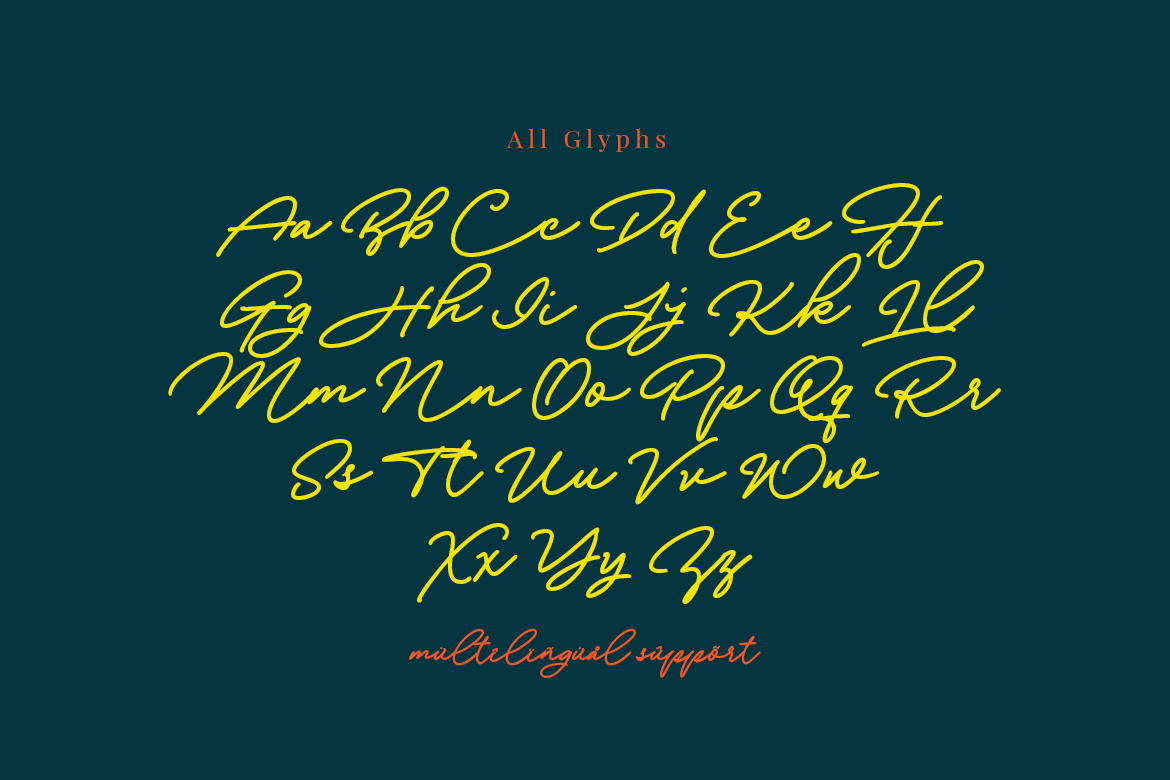 All Glyphs
Aa Bb Cc Dd Ee Ff
Gg Hh Ii Jj Kk Ll
Mm Nn Oo Pp Qq Rr
Ss Tt Uu Vv Ww
Xx Yy Zz
mültïlïñgüål süppõrt